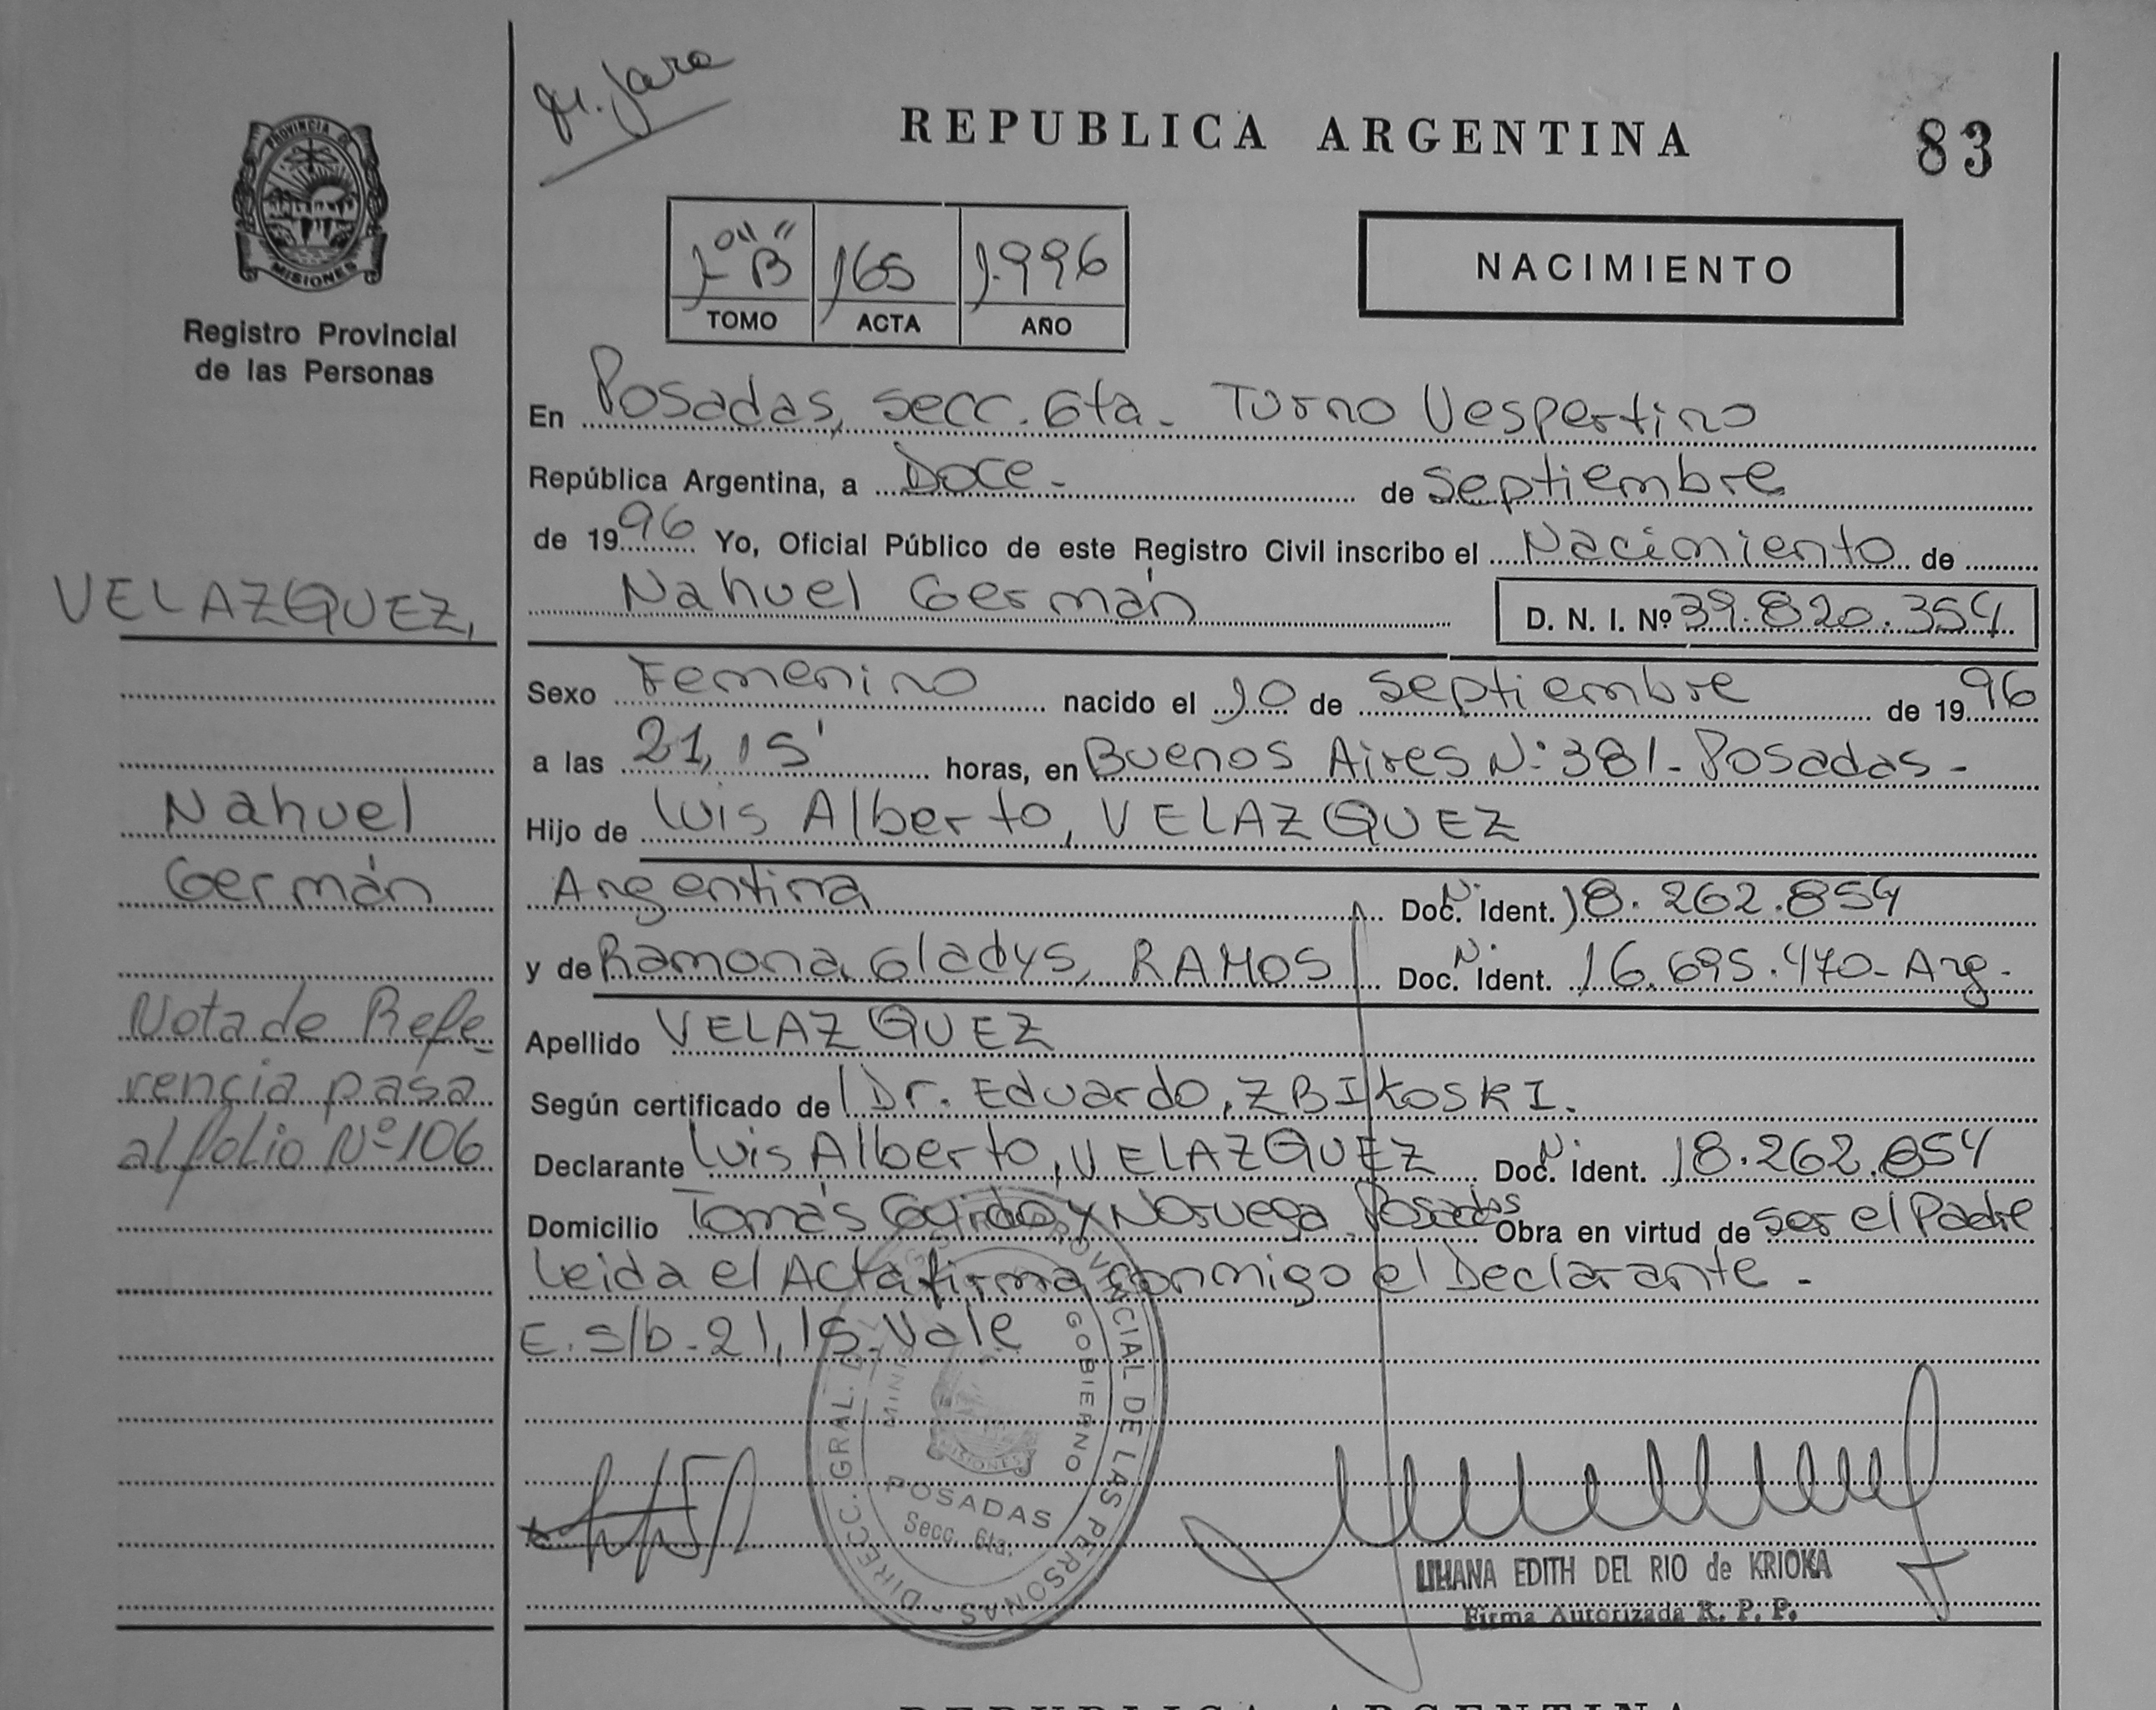 M. Jara
REPUBLICA ARGENTINA
83
PROVINCIA DE
MISIONES
Registro Provincial
de las Personas
1º "B" 165 1.996
TOMO ACTA AÑO
NACIMIENTO
En Posadas, secc. 6ta - Turno Vespertino
República Argentina, a Doce - de septiembre
de 1996 Yo, Oficial Público de este Registro Civil inscribo el Nacimiento de
Nahuel Germán D. N. I. Nº 39.820.354
Sexo Femenino nacido el 10 de septiembre de 1996
a las 21,15' horas, en Buenos Aires Nº 381 - Posadas -
Hijo de Luis Alberto, VELAZQUEZ
Argentina Doc. Nº Ident. 18.262.854
y de Ramona Gladys, RAMOS Doc. Nº Ident. 16.695.470 - Arg.
Apellido VELAZQUEZ
Según certificado de Dr. Eduardo, ZBIKOSKI.
Declarante Luis Alberto, VELAZQUEZ Doc. Nº Ident. 18.262.854
Domicilio Tomás Guido y Noruega. Posadas Obra en virtud de ser el Padre
Leida el Acta firma conmigo el Declarante -
E. s/b - 21,15. Vale
VELAZQUEZ,
Nahuel
Germán
Nota de Refe-
rencia pasa
al folio Nº 106
DIRECC. GRAL. PROVINCIAL DE LAS PERSONAS
GOBIERNO
MISIONES
POSADAS
Secc. 6ta.
LILIANA EDITH DEL RIO de KRIOKA
Firma Autorizada R. P. P.
REPUBLICA ARGENTINA